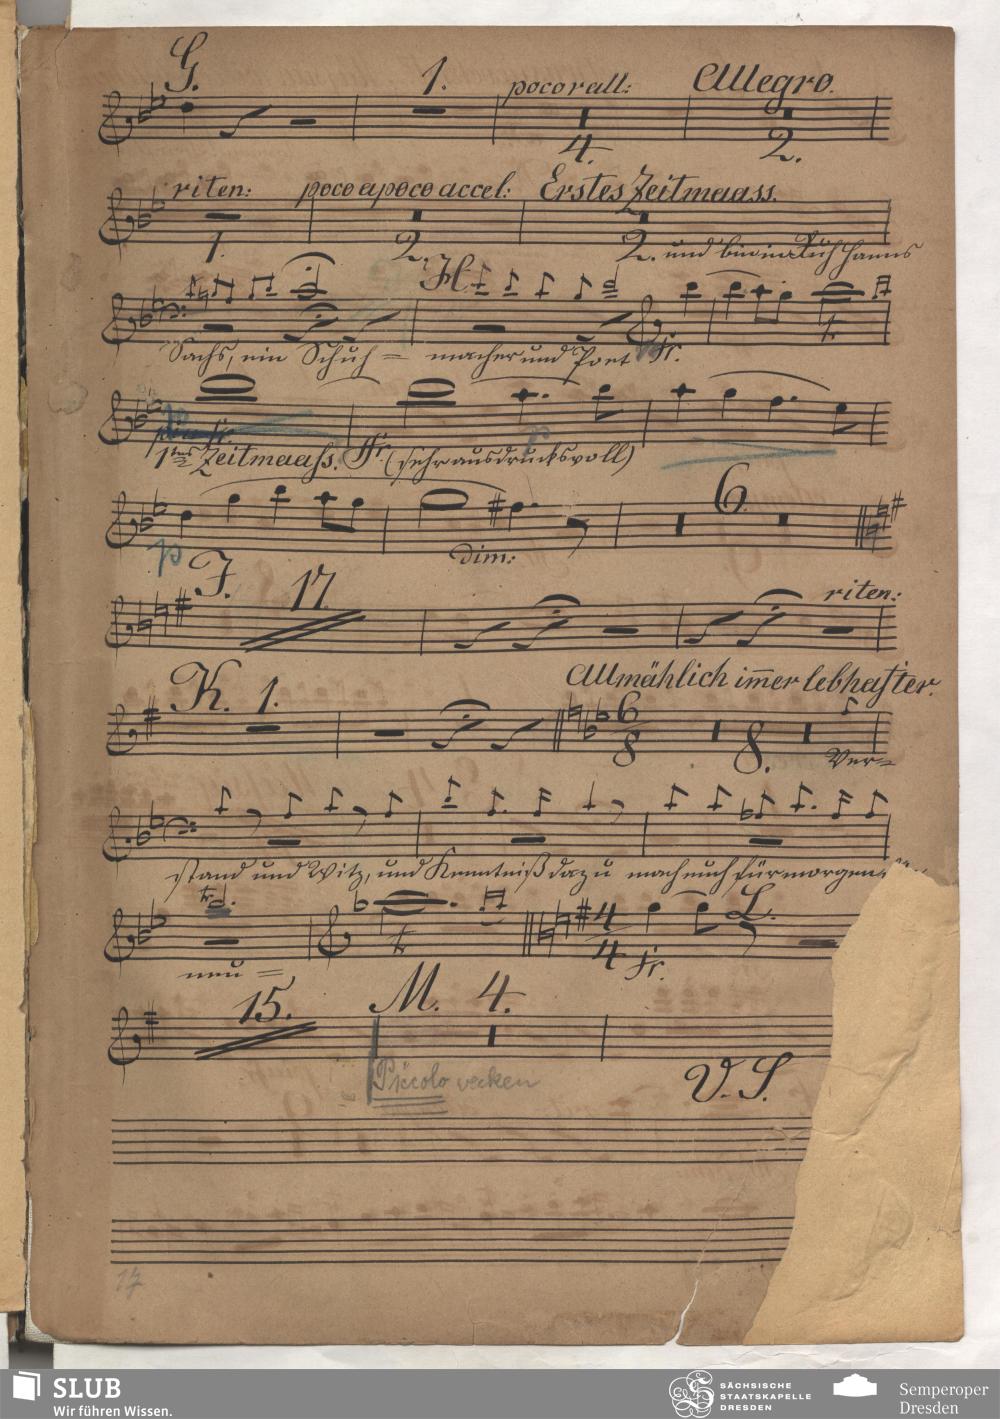 G. 1. poco rall: Allegro.
4. 2.
riten: poco a poco accel: Erstes Zeitmaass.
1. 2. 2. und bin i. d. Ruh Hanns
H
Sachs, ein Schuh = macher und Poet Fr.
1tes Zeitmaass. Fr. (sehr ausdrucksvoll)
p
6.
p dim:
J. 17. riten:
K. 1. Allmählich im̄er lebhafter.
6
8 8. Ver=
stand und Witz, und Kenntniß dazu mach euch für morgen
tr
neu = 4
4 Fr. L.
15. M. 4.
Piccolo wecken V. S.
17
SLUB
Wir führen Wissen.
SÄCHSISCHE
STAATSKAPELLE
DRESDEN
Semperoper
Dresden